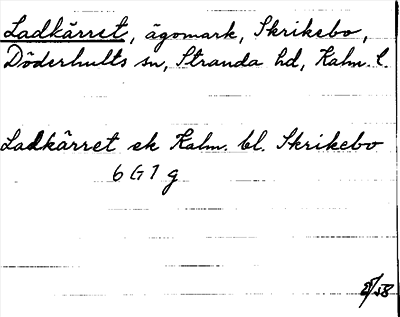 Ladkärret, ägomark, Skrikebo,
Döderhults sn, Stranda hd, Kalm. l.
Ladkärret ek Kalm. bl. Skrikebo
6 G 7 g